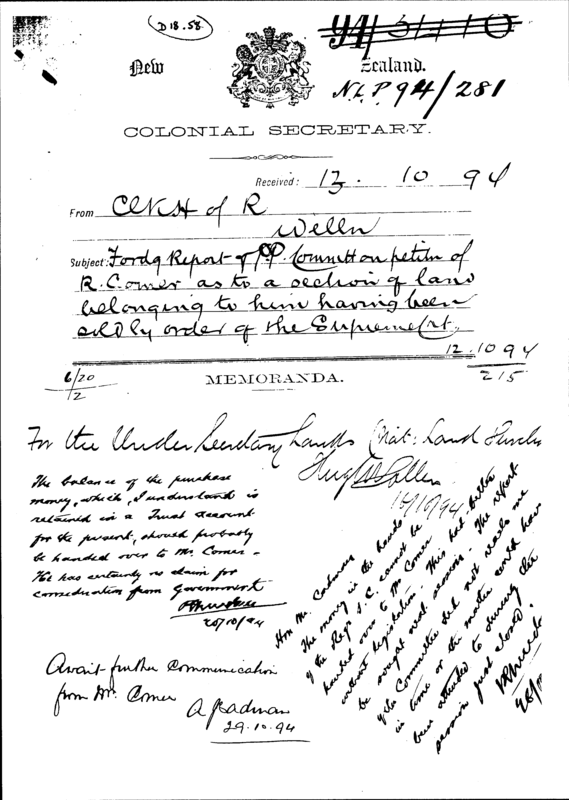 D 18.58.
New Zealand.
N.L.P. 94/281
COLONIAL SECRETARY.
Received: 13. 10 94
From Clk H of R
Welln
Subject: Fordg Report of P.P. Committ on petitn of
R. Comer as to a section of land
belonging to him having been
sold by order of the Supreme Crt.
12.10 94
215
6/20
2
MEMORANDA.
For the Under Secretary Lands (Nat: Land Purchs
16/10/94
The balance of the purchase
money, which, I understand is
retained in a Trust account
for the present, should probably
be handed over to Mr. Comer.
He has certainly no claim for
consideration from Government
20/10/94
Await further communication
from Mr. Comer
29.10.94
Hon Mr. Cadman
The money in the hands
of the Regr S.C. cannot be
handed over to Mr Comer
without legislation. This had better
be sought next session. The report
of the Committee did not reach me
in time or the matter could have
been attended to during the
session just closed.